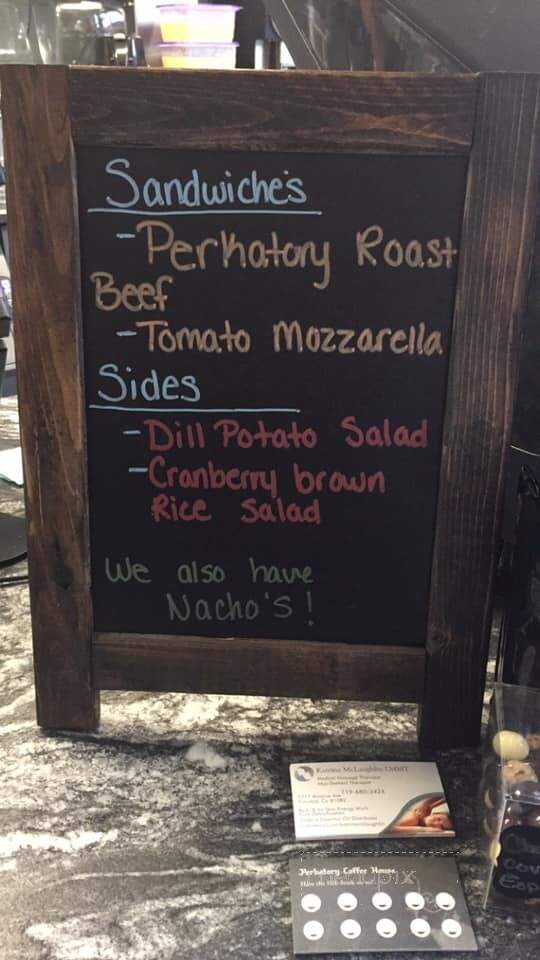 Sandwiche's
- Perkatory Roast
Beef
- Tomato Mozzarella
Sides
- Dill Potato Salad
- Cranberry brown
Rice Salad
We also have
Nacho's!
McLaughlin
719-680-2424
Perkatory Coffee House